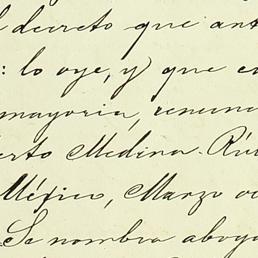 l decreto que ant
: lo oye, y que e
mayoria, renunc
erto Medina. Rú
México, Marzo oc
Se nombra aboga